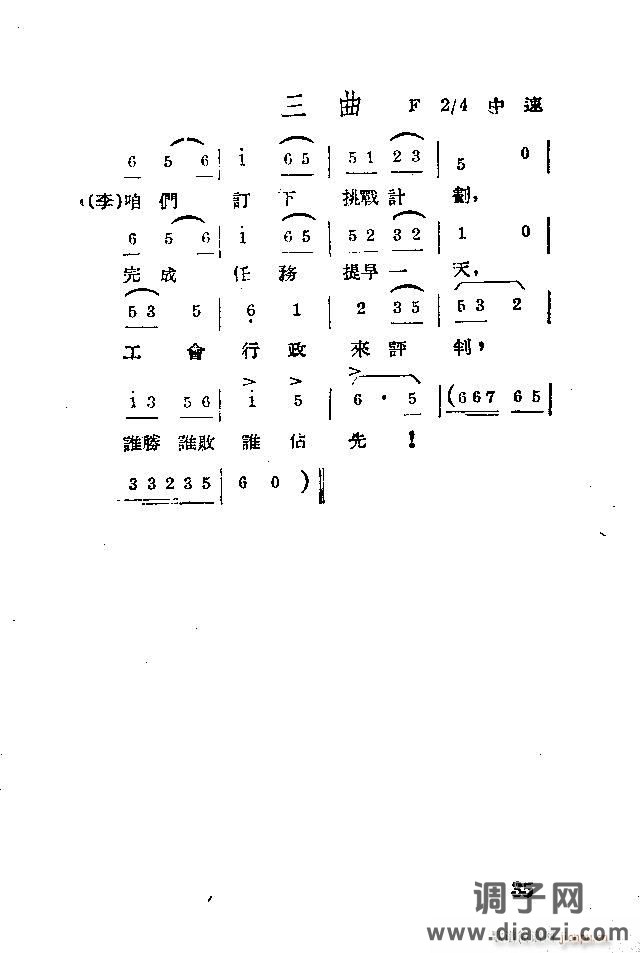 三曲 F 2/4 中速
6 5 6 | i 6 5 | 5 1 2 3 | 5 0 |
(李)咱們 訂 下 挑戰計 劃,
6 5 6 | i 6 5 | 5 2 3 2 | 1 0 |
完成 任務 提早一 天,
5 3 5 | 6 1 | 2 3 5 | 5 3 2 |
工會行政 來評 判,
i 3 5 6 | i 5 | 6 · 5 | (6 6 7 6 5 |
誰勝誰敗誰佔 先!
3 3 2 3 5 | 6 0 ) ||
35
调子网
www.diaozi.com